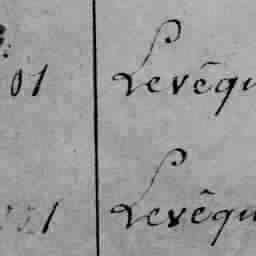 01 Levêqu
1 Levêqu